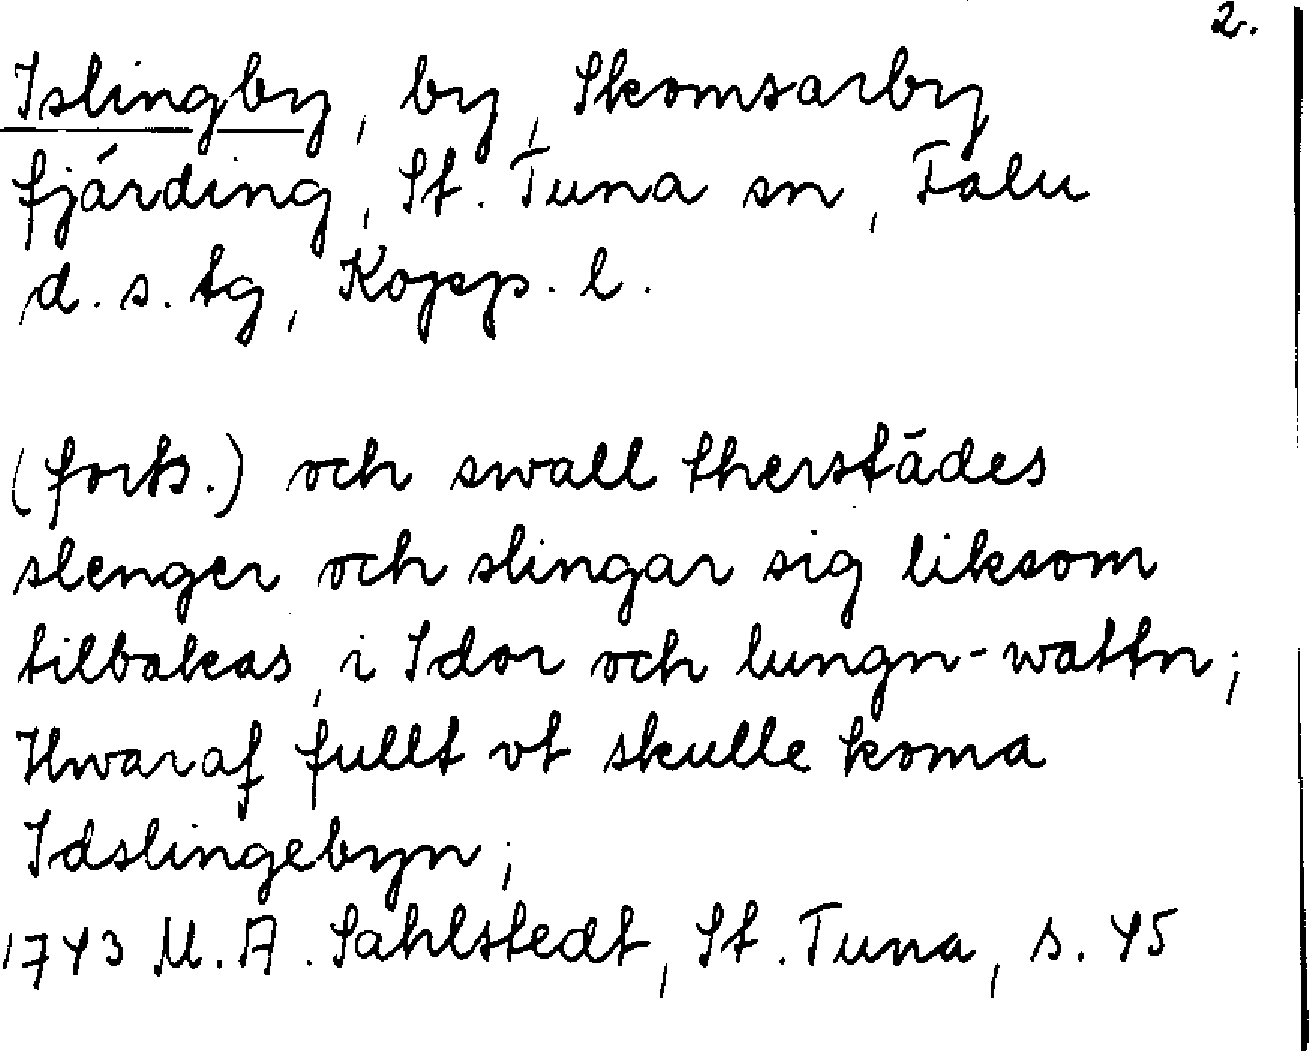 2.
Islingby, by, Skomsarby
fjärding, St. Tuna sn, Falu
d. s. tg, Kopp. l.
(forts.) och swall therstädes
slenger och slingar sig liksom
tilbakas, i Idor och lungn-wattn;
Hwaraf fullt vt skulle koma
Idslingebyn;
1743 U. A. Sahlstedt, St. Tuna, s. 45